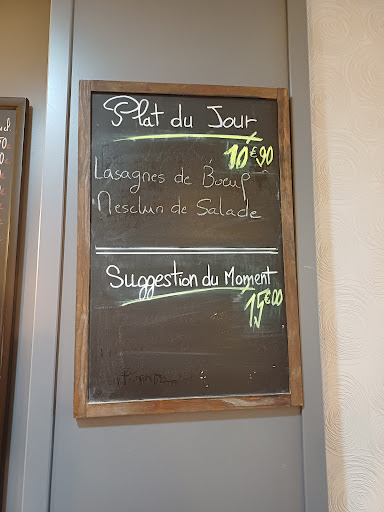 Plat du Jour
10€90
Lasagnes de Boeuf
Mesclun de Salade
Suggestion du Moment
15€00